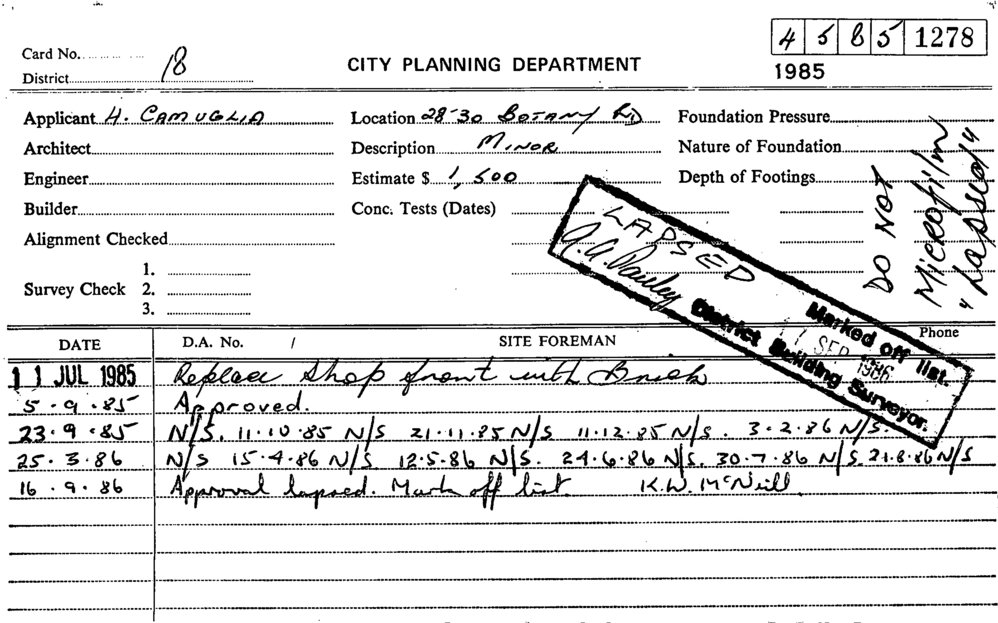 4 5 8 5 1278
Card No.
District 18
CITY PLANNING DEPARTMENT
1985
Applicant H. CAMUGLIA
Location 28-30 BOTANY RD
Foundation Pressure
Architect
Description MINOR
Nature of Foundation
Engineer
Estimate $ 1,500
Depth of Footings
Builder
Conc. Tests (Dates)
Alignment Checked
Survey Check
1.
2.
3.
DO NOT
Microfilm
"Lapsed"
LAPSED
Marked off list.
1 SEP 1986
District Building Surveyor.
DATE
D.A. No. /
SITE FOREMAN
Phone
11 JUL 1985 Replace shop front with Brick
5.9.85 Approved.
23.9.85 N/S. 11.10.85 N/S 21.11.85 N/S 11.12.85 N/S. 3.2.86 N/S.
25.3.86 N/S 15.4.86 N/S 12.5.86 N/S. 24.6.86 N/S. 30.7.86 N/S. 21.8.86 N/S
16.9.86 Approval lapsed. Mark off list. K.W. McNeill